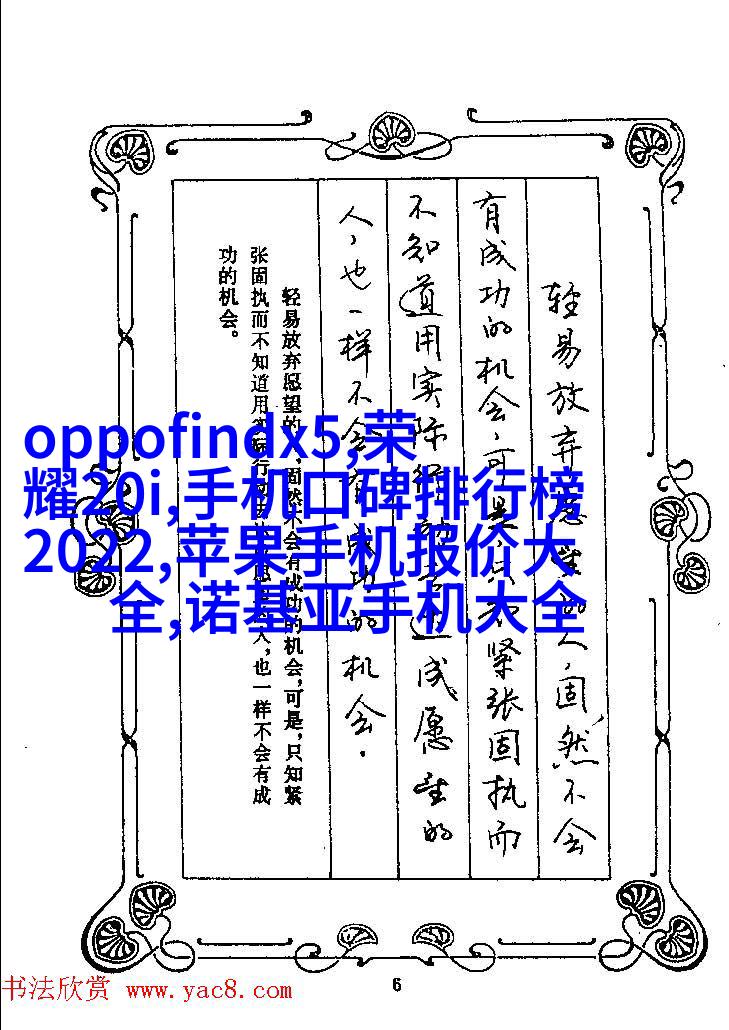 轻易放弃愿望的人,固然不会
有成功的机会,可是只知紧张固执而
不知道用实际成愿望的
人,也一样不会有成功的机会.
轻易放弃愿望的,固然不会有成功的机会,可是,只知紧
张固执而不知道用实际行人,也一样不会有成
功的机会。
oppofindx5,荣
耀20i,手机口碑排行榜
2022,苹果手机报价大
全,诺基亚手机大全
6
书法欣赏 www.yac8.com